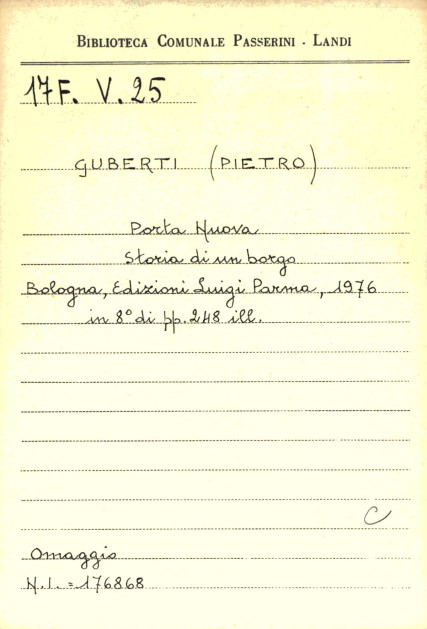 BIBLIOTECA COMUNALE PASSERINI - LANDI
17F. V. 25
GUBERTI (PIETRO)
Porta Nuova
Storia di un borgo
Bologna, Edizioni Luigi Parma, 1976
in 8° di pp. 248 ill.
C
Omaggio
N.I. = 176868